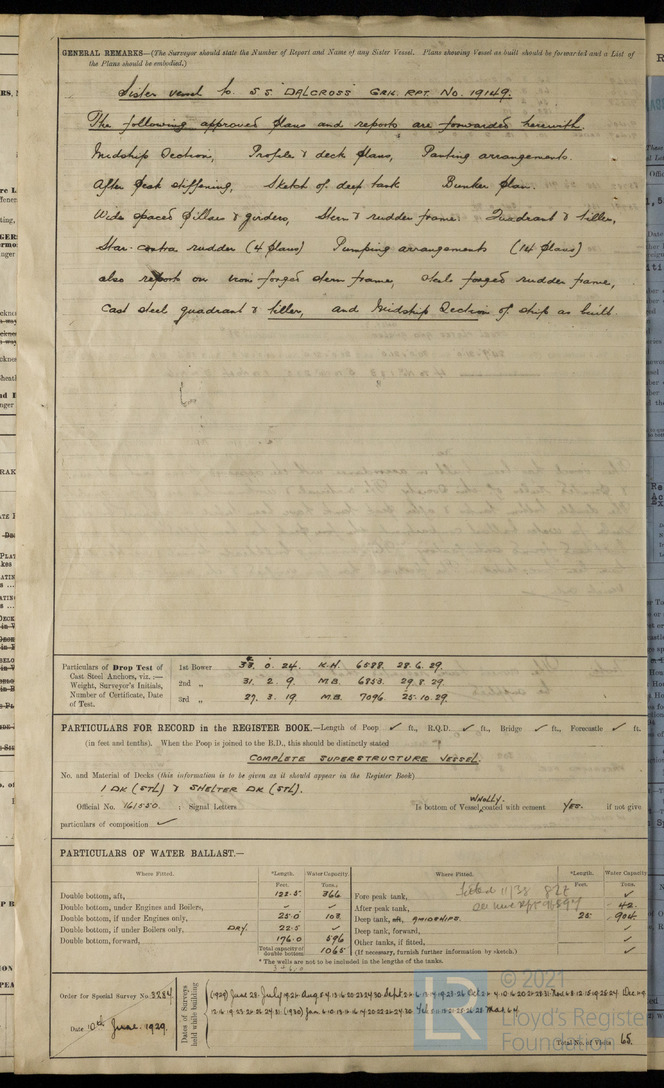 GENERAL REMARKS—(The Surveyor should state the Number of Report and Name of any Sister Vessel. Plans showing Vessel as built should be forwarded and a List of
the Plans should be embodied.)
Sister vessel to S.S. "DALCROSS" GRK. RPT. No. 19149.
The following approved plans and reports are forwarded herewith.
Midship Section, Profile & deck plans, Panting arrangements.
After peak stiffening, Sketch of deep tank Bunker plan.
Wide spaced pillars & girders, Stern & rudder frame. Quadrant & tiller,
Star-contra rudder (4 plans) Pumping arrangements (14 plans)
also reports on iron forged stern frame, steel forged rudder frame,
cast steel quadrant & tiller, and Midship Section of ship as built.
Particulars of Drop Test of
Cast Steel Anchors, viz. :—
Weight, Surveyor's Initials,
Number of Certificate, Date
of Test.
1st Bower 38. 0. 24. K.H. 6588 28.6.29.
2nd „ 31. 2. 9. M.B. 6853. 29.8.29.
3rd „ 27. 3. 19. M.B. 7096 25.10.29.
PARTICULARS FOR RECORD in the REGISTER BOOK.—Length of Poop ✓ ft., R.Q.D. ✓ ft., Bridge ✓ ft., Forecastle ✓ ft.
(in feet and tenths). When the Poop is joined to the B.D., this should be distinctly stated
COMPLETE SUPERSTRUCTURE VESSEL.
No. and Material of Decks (this information is to be given as it should appear in the Register Book)
1 DK (STL) & SHELTER DK (STL).
Official No. 161550 ; Signal Letters Is bottom of Vessel WHOLLY coated with cement YES. if not give
particulars of composition ✓
PARTICULARS OF WATER BALLAST.—
Where Fitted. *Length. Water Capacity. Where Fitted. *Length. Water Capacity
Feet. Tons. Feet. Tons.
Double bottom, aft, 122.5 366 Fore peak tank, ✓
Double bottom, under Engines and Boilers, ✓ ✓ After peak tank, 42.
Double bottom, if under Engines only, 25.0 103 Deep tank, aft, AMIDSHIPS. 25 904
Double bottom, if under Boilers only, DRY. 22.5 ✓ Deep tank, forward, ✓
Double bottom, forward, 176.0 596 Other tanks, if fitted, ✓
Total capacity of double bottom 1065 (If necessary, furnish further information by sketch.) ✓
* The wells are not to be included in the lengths of the tanks.
Order for Special Survey No. 3284
Date 10th June 1929.
Dates of Surveys
held while building
Total No. of Visits 65.
© 2021
LR
Lloyd's Registe
Foundation